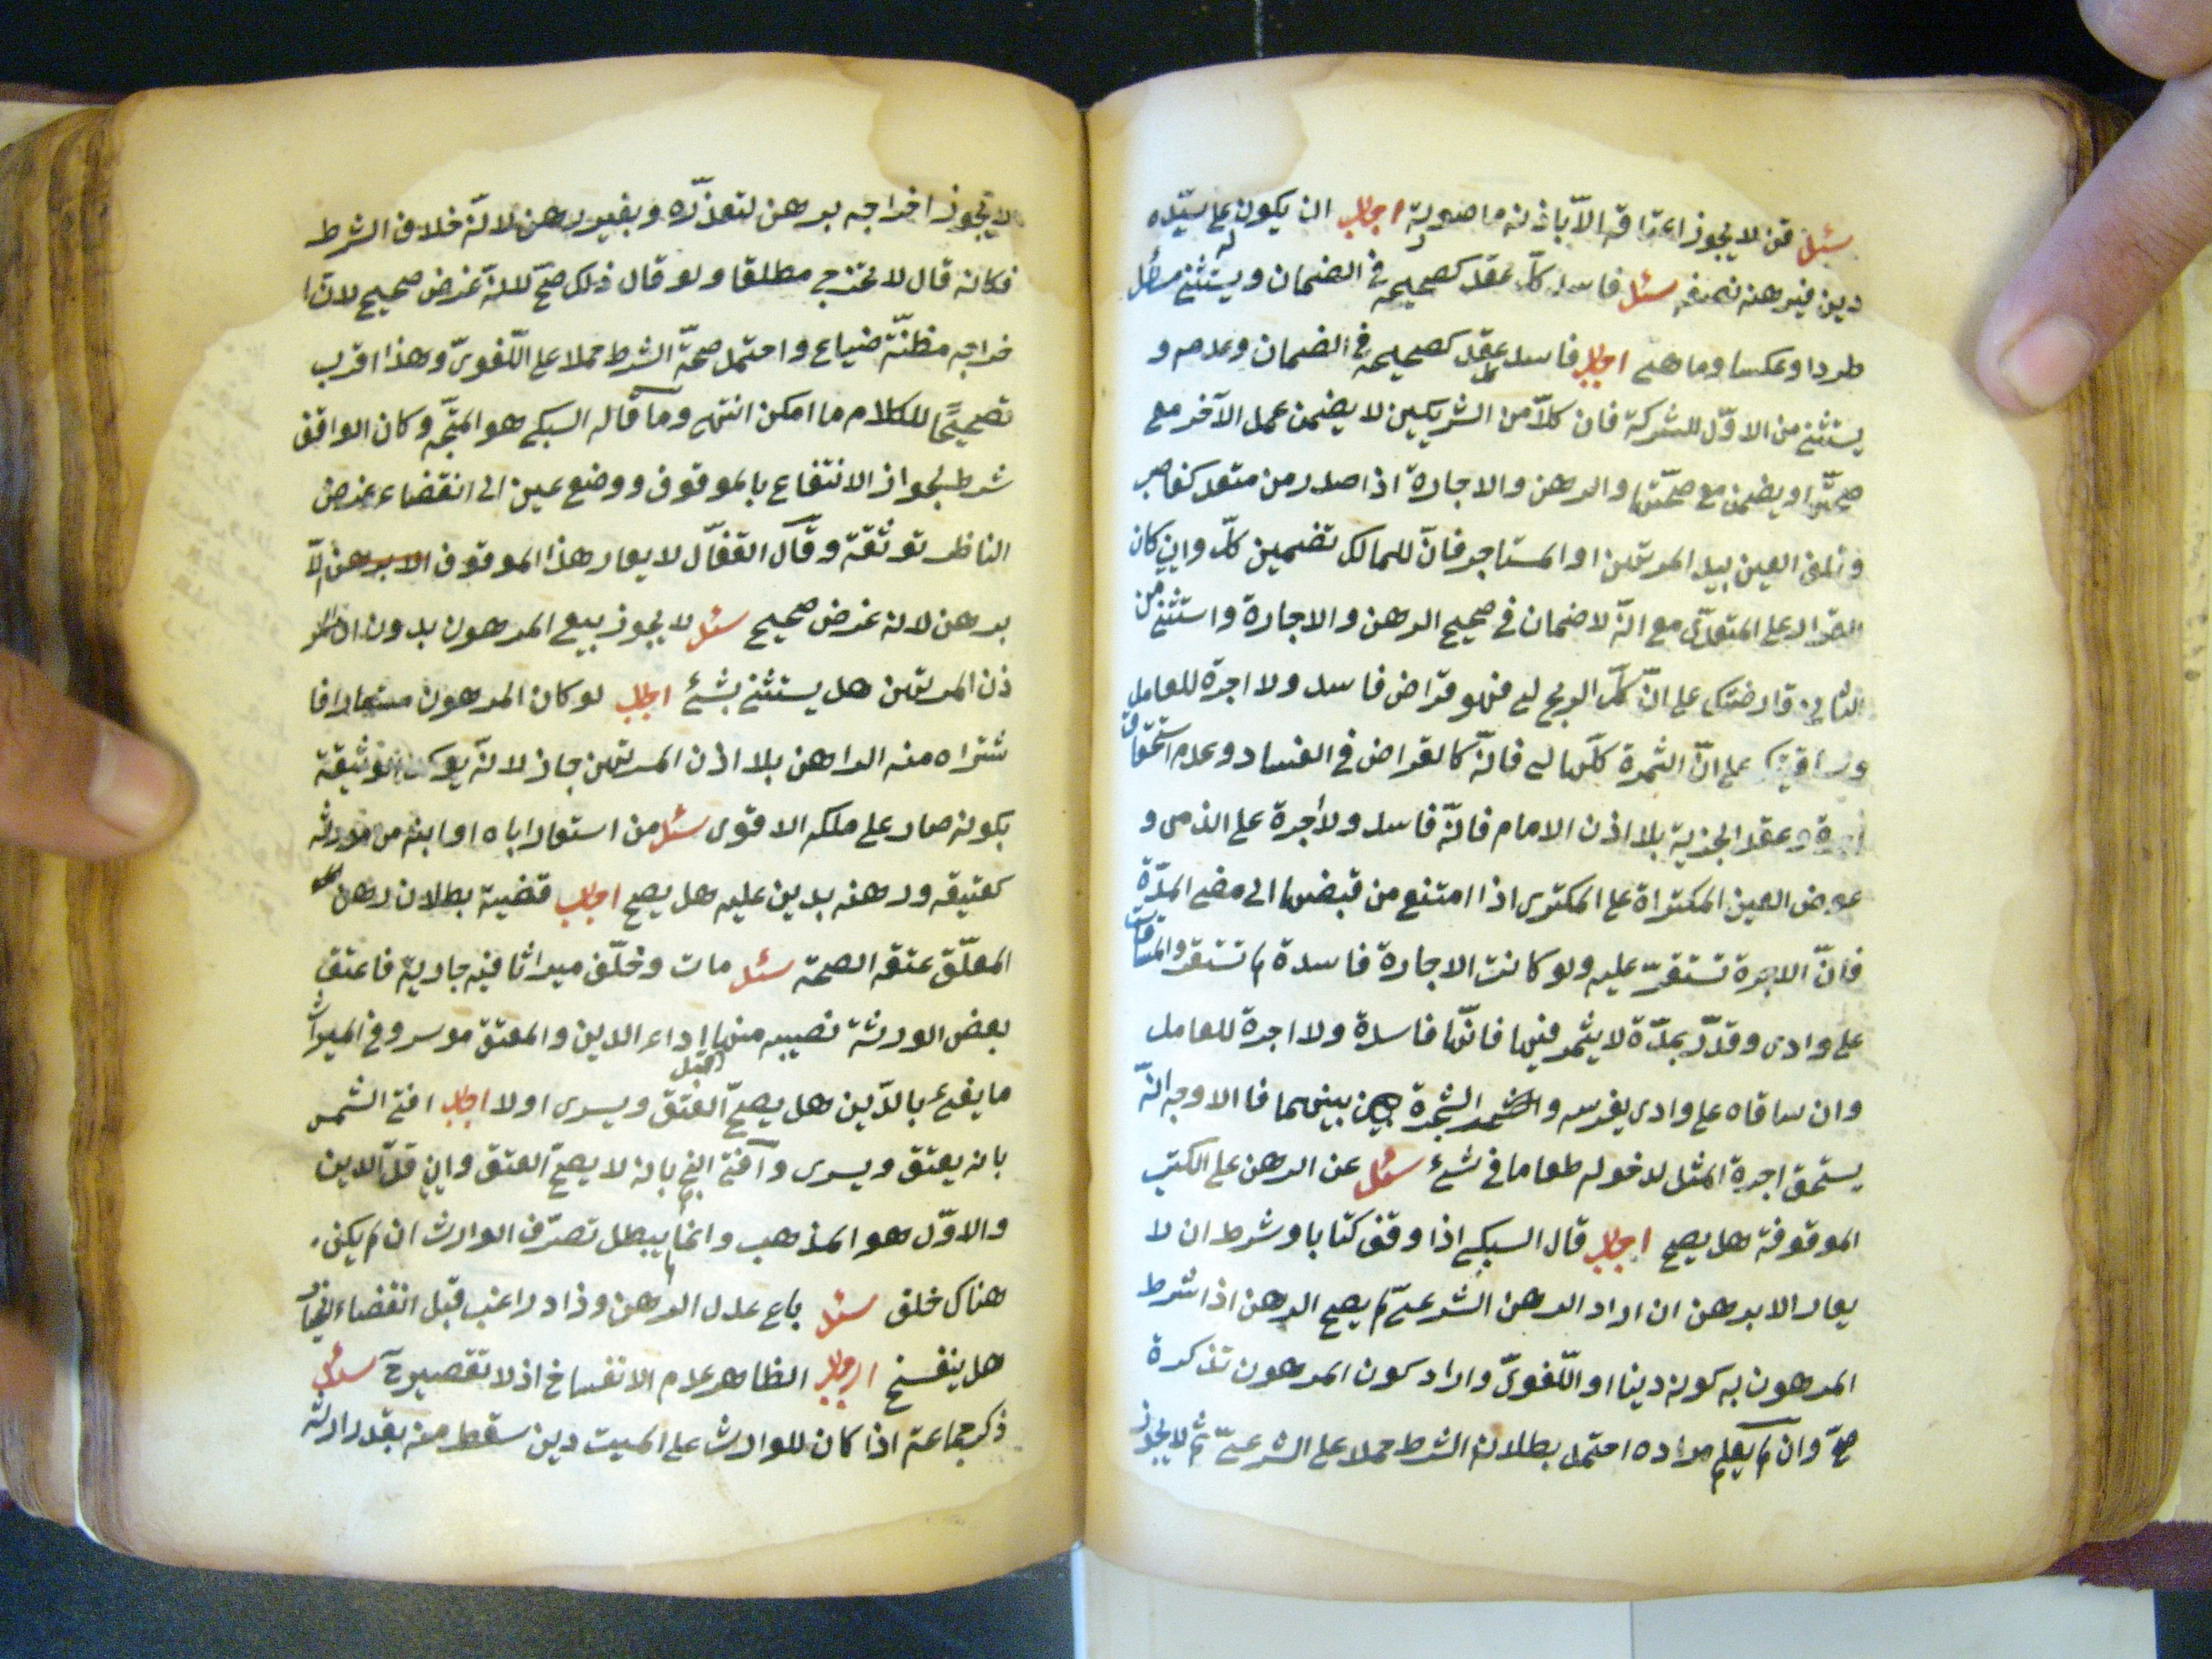 سئل قن لا يجوز اعتاقه الا باذنه ما صورته اجاب ان يكون على سيّده
دين فيرهنه نفسه سئل فاسد كلّ عقد كصحيحه في الضمان ويستثنى مسائل
طردا وعكسا وما هى اجاب فاسد كل عقد كصحيحه في الضمان وعدمه و
يستثنى من الاوّل الشركة فان كلاّ من الشريكين لا يضمن عمل الآخر مع
صحّتها ويضمن مع صحّتها والرهن والاجارة اذا صدر من متعد كغاصب
وتلف العين بيد المرتهن او المستاجر فانّ للمالك تضمين كلّ وان كان
القرار على المتعدّى مع انّه لا ضمان في صحيح الرهن والاجارة واستثنى من
الثانى قارضتك على انّ كلّ الربح لى فهو قراض فاسد ولا اجرة للعامل
وساقيتك على انّ الثمرة كلّها لى فانّه كالقراض في الفساد وعدم استحقاق
اجرة وعقد الجزية بلا اذن الامام فانّه فاسد ولا أجرة على الذمى و
عرض العين المكتراة على المكترى اذا امتنع من قبضها الى مضى المدّة
فانّ الاجرة تستقرّ عليه ولو كانت الاجارة فاسدة لم تستقر والمساقات
على وادى وقدّر بمدّة لا يثمر فيها فانّها فاسدة ولا اجرة للعامل
وان ساقاه على وادى يغرسه والشجرة بينهما فا الاوجه انّه
يستحق اجرة المثل لدخوله طعاما في شىء سئل عن الرهن على الكتب
الموقوفة هل يصح اجاب قال السبكى اذا وقف كتابا وشرط ان لا
يعار الا برهن ان اراد الرهن الشرعىّ لم يصح الرهن اذا شرط
المرهون به كونه دينا او اللّغوىّ واراد كون المرهون تذكرة
صحّ وان لم يعلم مراده احتمل بطلان الشرط حملا على الشرعىّ ثم لا يجوز
لا يجوز اخراجه برهن لتعذّره وبغير رهن لانّه خلاف الشرط
فكانه قال لا تخرج مطلقا ولو قال ذلك صحّ لانّه غرض صحيح لان ا
خراجه مظنّة ضياع واحتمل صحّة الشرط حملا على اللّغوىّ وهذا اقرب
تصحيحًا للكلام ما امكن انتهى وما قاله السبكى هو المتّجه وكان الواقف
شرط لجواز الانتفاع بالموقوف ووضع عين الى انقضاء غرض
الناظر توثقة وقال القفّال لا يعار هذا الموقوف الا
برهن لانه غرض صحيح سئل لا يجوز بيع المرهون بدون ا
ذن المرتهن هل يستثنى بشىء اجاب لو كان المرهون مستعارا فا
شتراه منه الراهن بلا اذن المرتهن جاز لانّه يؤكد الوثيقة
بكونه صار على ملكه الاقوى سئل من استعار اباه او ابنه من مورثه
كعتيقه ورهنه بدين عليه هل يصح اجاب قضية بطلان رهن
المعلّق عتقه الصحة سئل مات وخلّف ميراثا فيه جارية فاعتق
بعض الورثة نصيبه منها قبل اداء الدين والمعتق موسر وفي الميراث
ما يفىء بالدّين هل يصحّ العتق ويسرى او لا اجاب افتى الشمس
بانه يعتق ويسرى وآفتى الفخ بانه لا يصحّ العتق وان قلّ الدين
والاوّل هو المذهب وانما يبطل تصرّف الوارث ان لم يكن
هناك خلف سئل باع عدل الرهن وزاد راغب قبل انقضاء الخيار
هل ينفسخ اجاب الظاهر عدم الانفساخ اذ لا تقصير ح سئل
ذكر جماعة اذا كان للوارث على الميت دين سقط منه بقدر ارثه